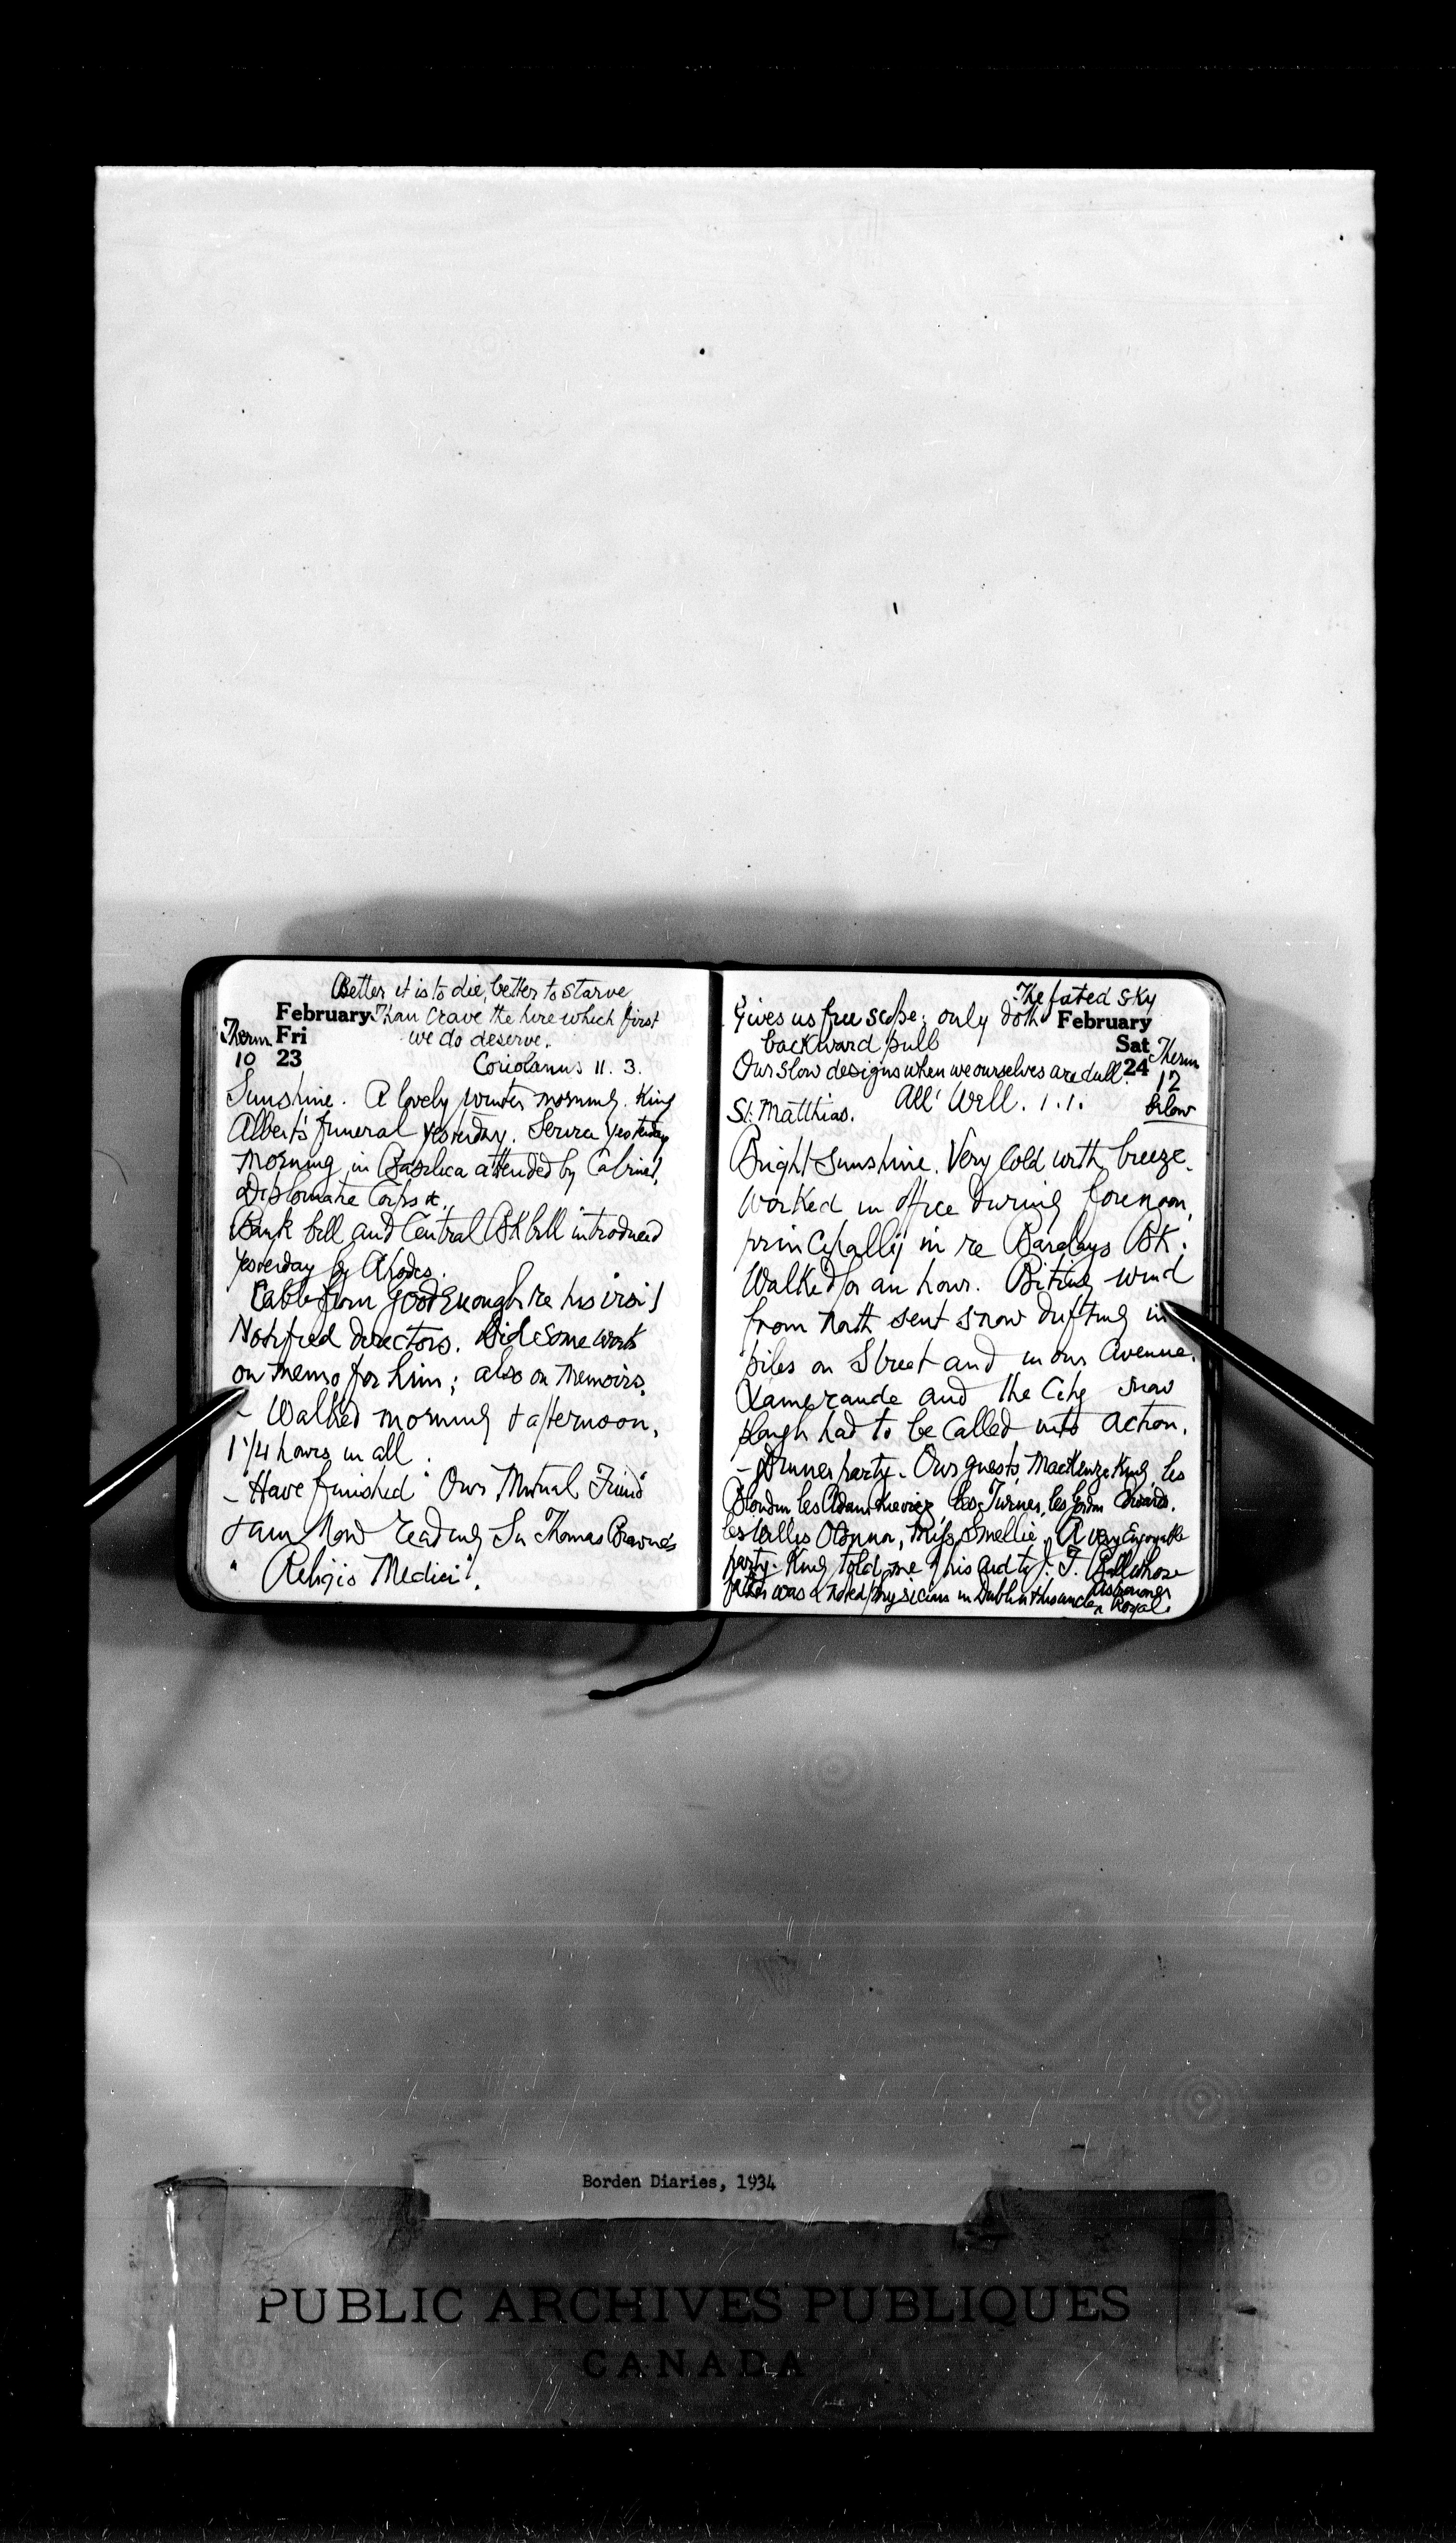 Better it is to die, better to starve
February Than crave the hire which first
Therm Fri we do deserve.
10 23 Coriolanus II. 3.
Sunshine. A lovely winter morning. King
Albert's funeral yesterday. Service yesterday
morning in Basilica attended by Cabinet,
Diplomatic Corps &c.
Bank bill and Central Bk bill introduced
yesterday by Rhodes.
Cable from Goodenough re his visit
Notified directors. Did some work
on memo for him; also on memoirs.
- Walked morning & afternoon,
1 1/4 hours in all.
- Have finished "Our Mutual Friend"
& am now reading Sir Thomas Browne's
"Religio Medici".
The fated sky
Gives us free scope; only doth February
backward pull Sat
Our slow designs when we ourselves are dull. 24 Therm
St. Matthias. All's Well. 1.1. 12
below
Bright sunshine. Very cold with breeze.
Worked in office during forenoon,
principally in re Barclays Bk.
Walked for an hour. Biting wind
from north sent snow drifting in
piles on street and in our avenue.
and the City snow
plough had to be called into action.
- Dinner party. Our guests, MacKenzie King, les
Blondin les Adamkiewicz les Turner, les
les Willis O'Connor, Miss Smellie. A very enjoyable
party. King told me of his F. Ball whose
father was a noted physician in Dublin & his uncle Astronomer
Royal.
Borden Diaries, 1934
PUBLIC ARCHIVES PUBLIQUES
CANADA